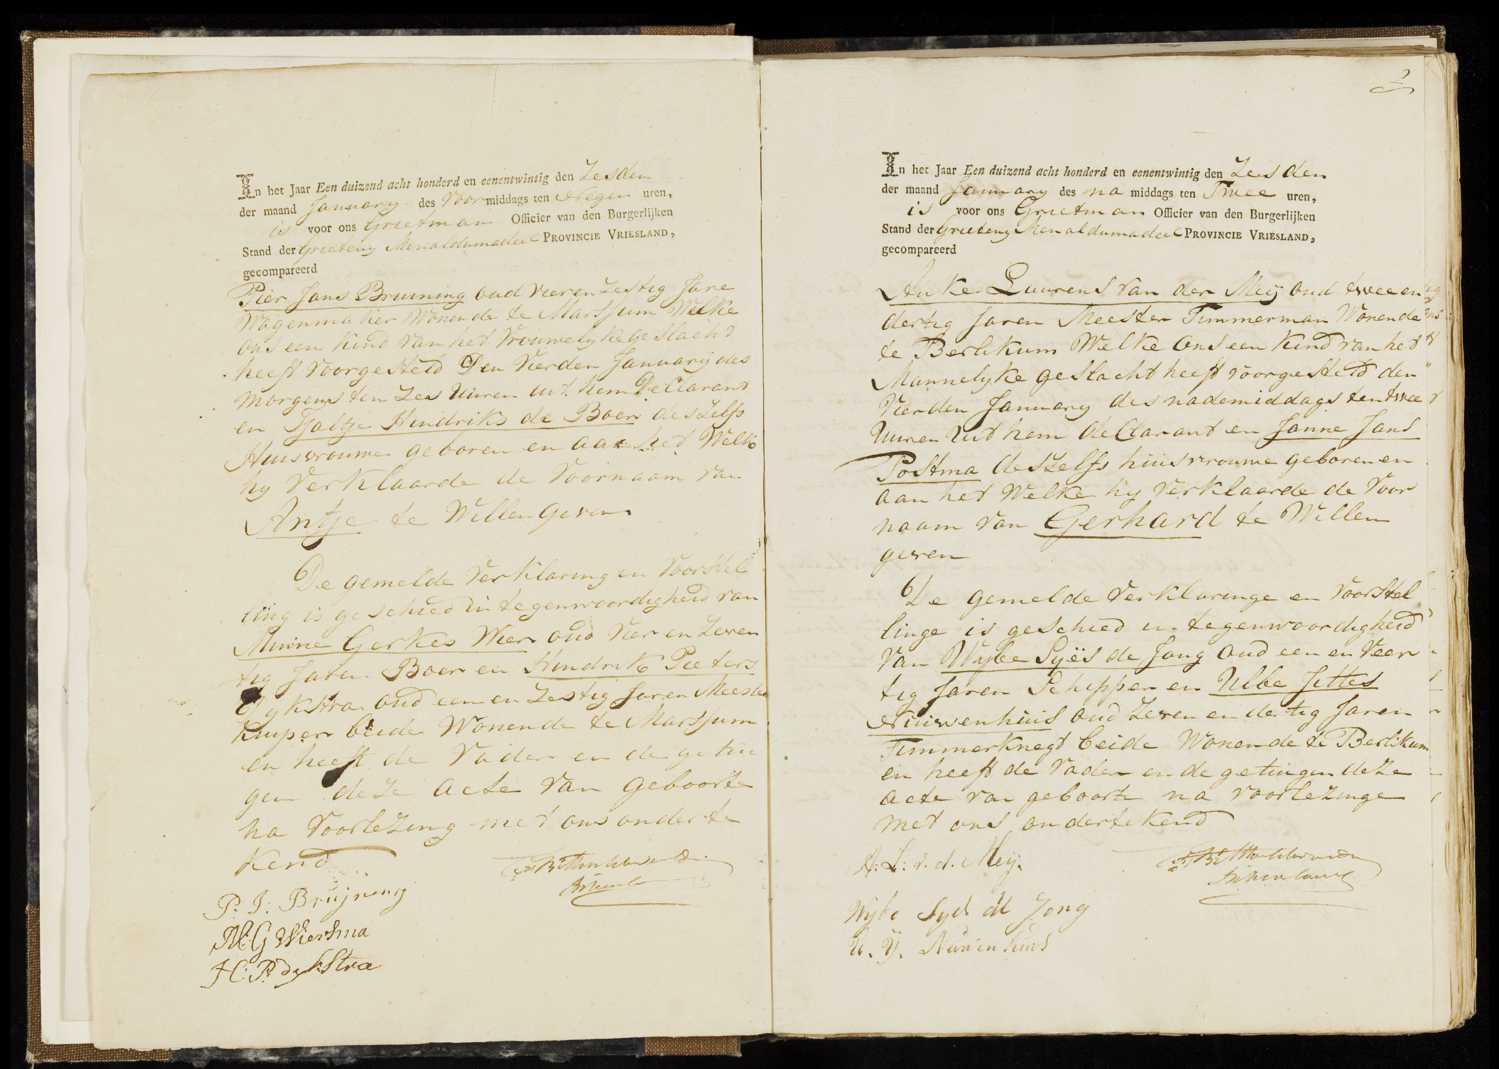 In het Jaar Een duizend acht honderd en eenentwintig den Zesden
der maand January des Voormiddags ten Negen uren,
is voor ons Grietman Officier van den Burgerlijken
Stand der Grieteny Menaldumadeel PROVINCIE VRIESLAND,
gecompareerd
Pier Jans Bruining oud vierenzestig Jare
Wagenmaker Wonende te Marssum Welke
ons een kind van het Vrouwelyke geslacht
heeft Voorgesteld Den Vierden January des
morgens ten Zes Uuren uit hem Declarant
en Tjaltje Hendriks de Boer deszelfs
Huisvrouwe geboren en aan het Welk
hy Verklaarde de Voornaam van
Antje te Willen Geven
De gemelde Verklaring en Voorstel
ling is geschied in tegenwoordigheid van
Minne Gerkes Wier oud Vier en Zeven
tig Jaren Boer en Hendrik Pieters
Dykstra oud een en Zestig Jaren Meester
Kuiper beide Wonende te Marssum
en heeft de Vader en de getui
gen deze acte van geboorte
na Voorlezing met ons onderte
kend
P. J. Bruijning
M: G Wiersma
H: P: dykstra
2
In het Jaar Een duizend acht honderd en eenentwintig den Zesden
der maand January des na middags ten Twee uren,
is voor ons Grietman Officier van den Burgerlijken
Stand der Grieteny Menaldumadeel PROVINCIE VRIESLAND,
gecompareerd
Auke Luurens van der Meij oud twee en
dertig Jaren Meester Timmerman Wonende
te Berlikum Welke ons een kind van het
Mannelyke geslacht heeft voorgesteld den
Vierden January des nademiddags ten twee
Uuren Uit hem declarant en Janne Jans
Postma deszelfs huisvrouwe geboren en
aan het Welke hy Verklaarde de Voor
naam van Gerhard te Willen
geven
De gemelde verklaringe en voorstel
linge is geschied in tegenwoordigheid
van Wybe Syës de Jong Oud een en Veer
tig Jaren Schipper en Ulbe Jittes
Nieuwenhuis oud Zeven en dertig Jaren
Timmerknegt beide Wonende te Berlikum
en heeft de Vader en de getuigen deze
acte van geboorte na voorlezinge
met ons ondertekend
A: L: v. d. Meij.
Wybe Syës de Jong